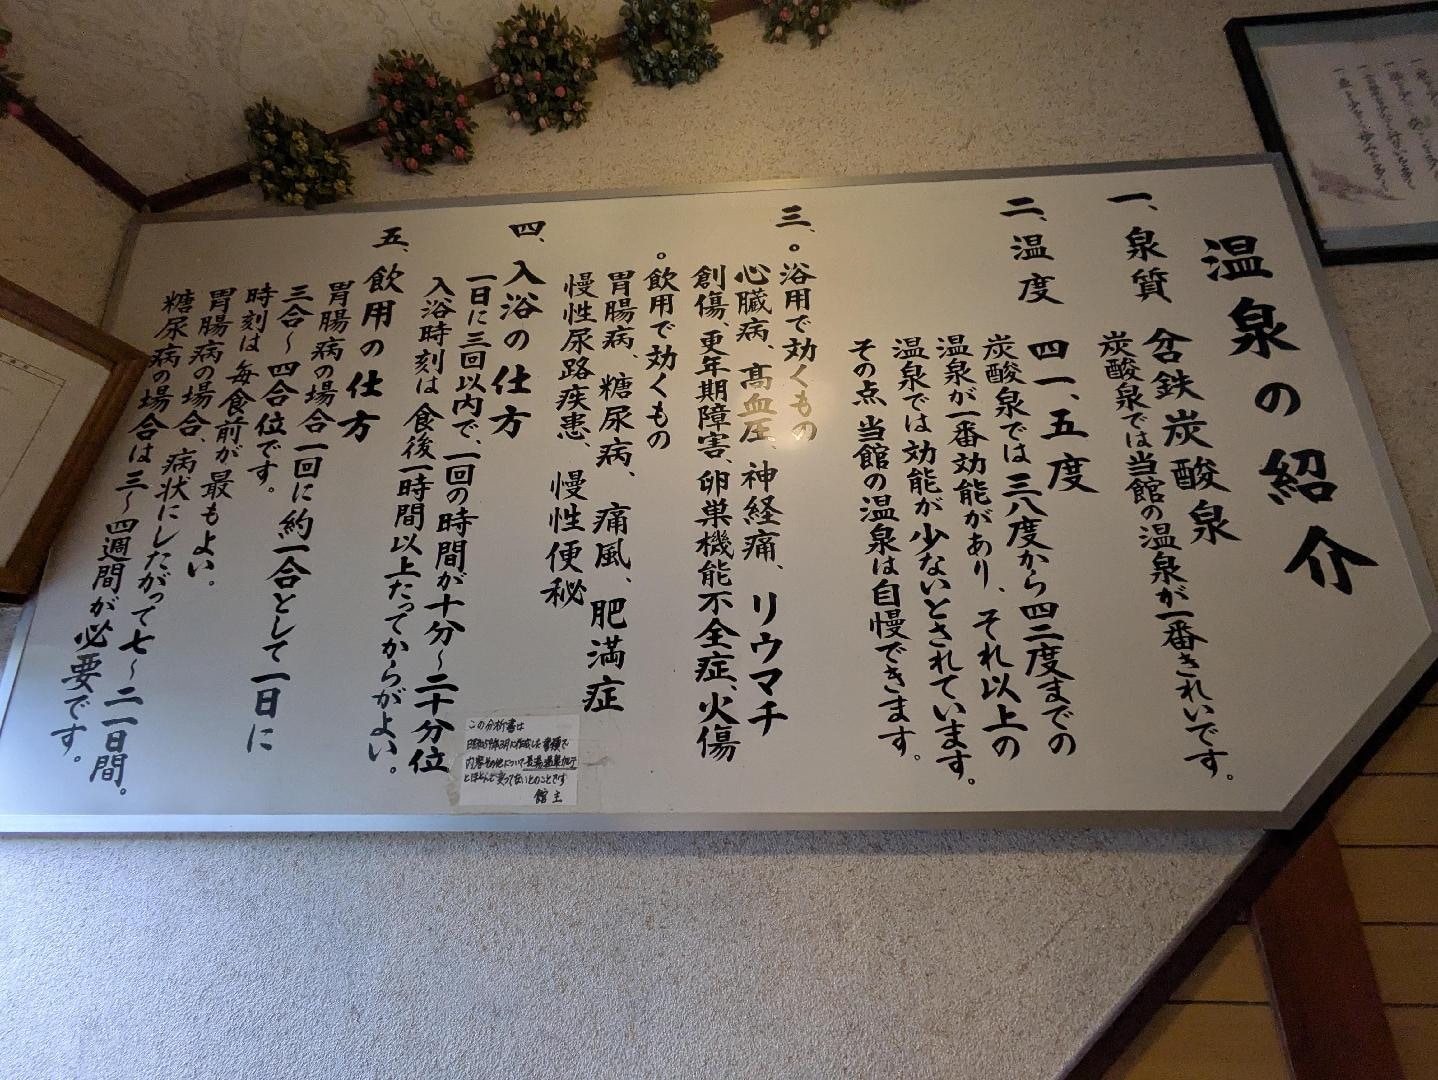 温泉の紹介
一、泉質
含鉄炭酸泉
炭酸泉では当館の温泉が一番きれいです。
二、温度
四一、五度
炭酸泉では三八度から四二度までの
温泉が一番効能があり、それ以上の
温泉では効能が少ないとされています。
その点当館の温泉は自慢できます。
三、。浴用で効くもの
心臓病、高血圧、神経痛、リウマチ
創傷、更年期障害、卵巣機能不全症、火傷
。飲用で効くもの
胃腸病、糖尿病、痛風、肥満症
慢性尿路疾患、慢性便秘
四、入浴の仕方
一日に三回以内で、一回の時間が十分〜二十分位
入浴時刻は食後一時間以上たってからがよい。
五、飲用の仕方
胃腸病の場合一回に約一合として一日に
三合〜四合位です。
時刻は毎食前が最もよい。
胃腸病の場合、病状にしたがって七〜二一日間。
糖尿病の場合は三〜四週間が必要です。
この分析書は
館主